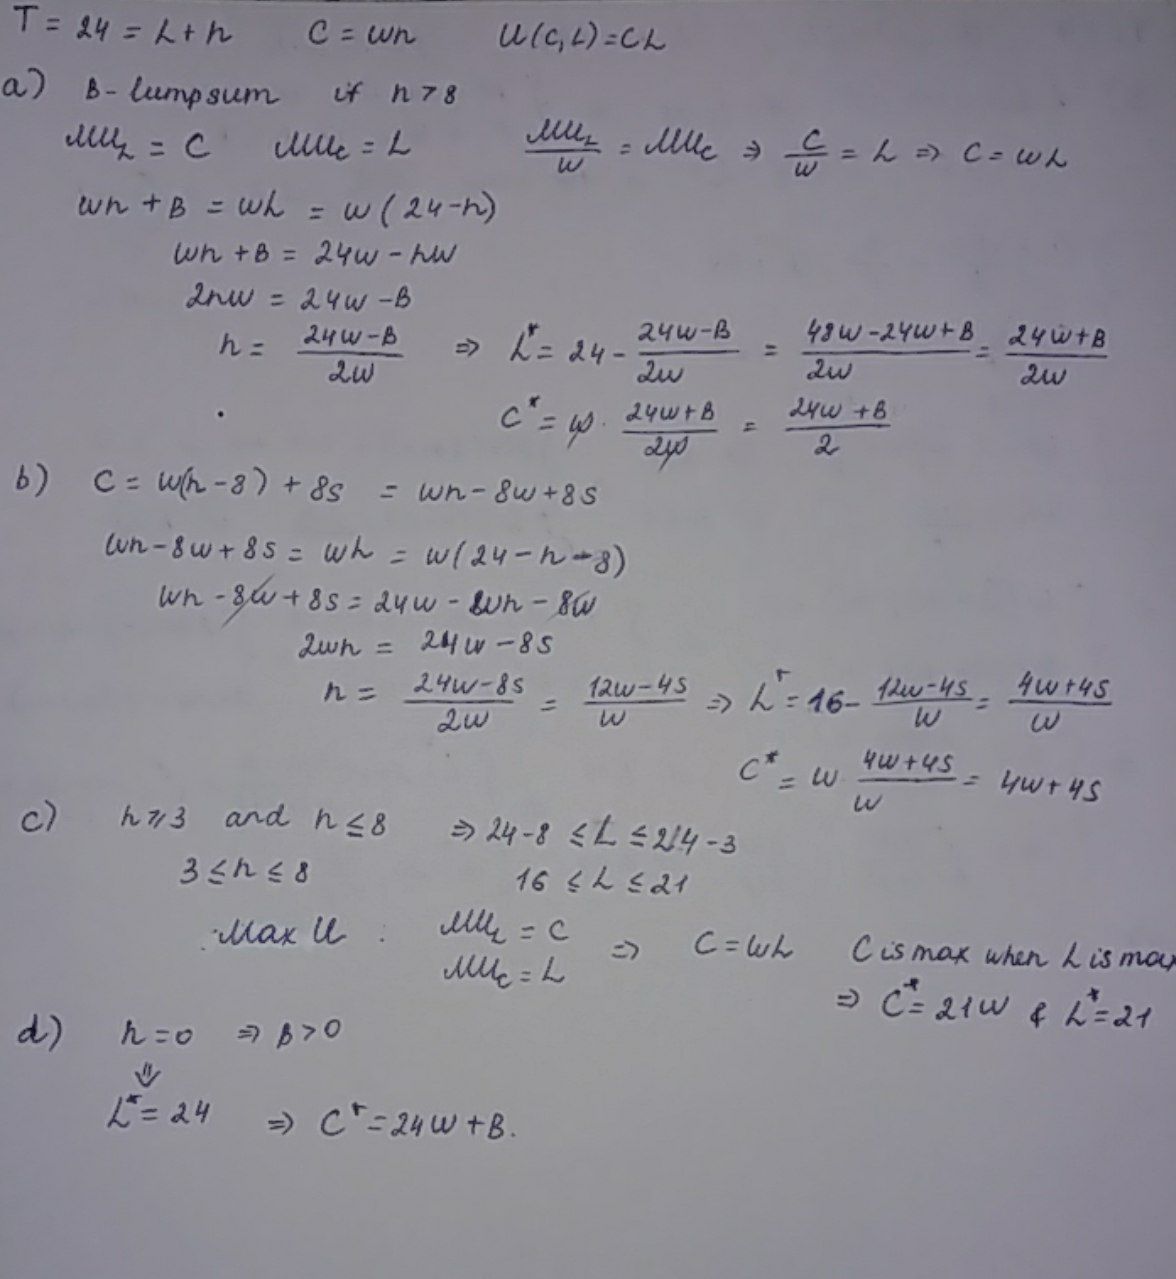 T = 24 = L + h C = wh U(C,L) = CL
a) B - lumpsum if h > 8
MU_L = C MU_C = L MU_L/w = MU_C ⇒ C/w = L ⇒ C = wL
wh + B = wL = w(24-h)
wh + B = 24w - hw
2hw = 24w - B
h = (24w-B)/2w ⇒ L* = 24 - (24w-B)/2w = (48w-24w+B)/2w = (24w+B)/2w
C* = w · (24w+B)/2w = (24w+B)/2
b) C = w(h-8) + 8s = wh - 8w + 8s
wh - 8w + 8s = wL = w(24-h-8)
wh - 8w + 8s = 24w - wh - 8w
2wh = 24w - 8s
h = (24w-8s)/2w = (12w-4s)/w ⇒ L* = 16 - (12w-4s)/w = (4w+4s)/w
C* = w · (4w+4s)/w = 4w+4s
c) h ≥ 3 and h ≤ 8 ⇒ 24-8 ≤ L ≤ 24-3
3 ≤ h ≤ 8 16 ≤ L ≤ 21
Max U : MU_L = C
MU_C = L ⇒ C = wL C is max when L is max
⇒ C* = 21w & L* = 21
d) h = 0 ⇒ B > 0
⇓
L* = 24 ⇒ C* = 24w + B.